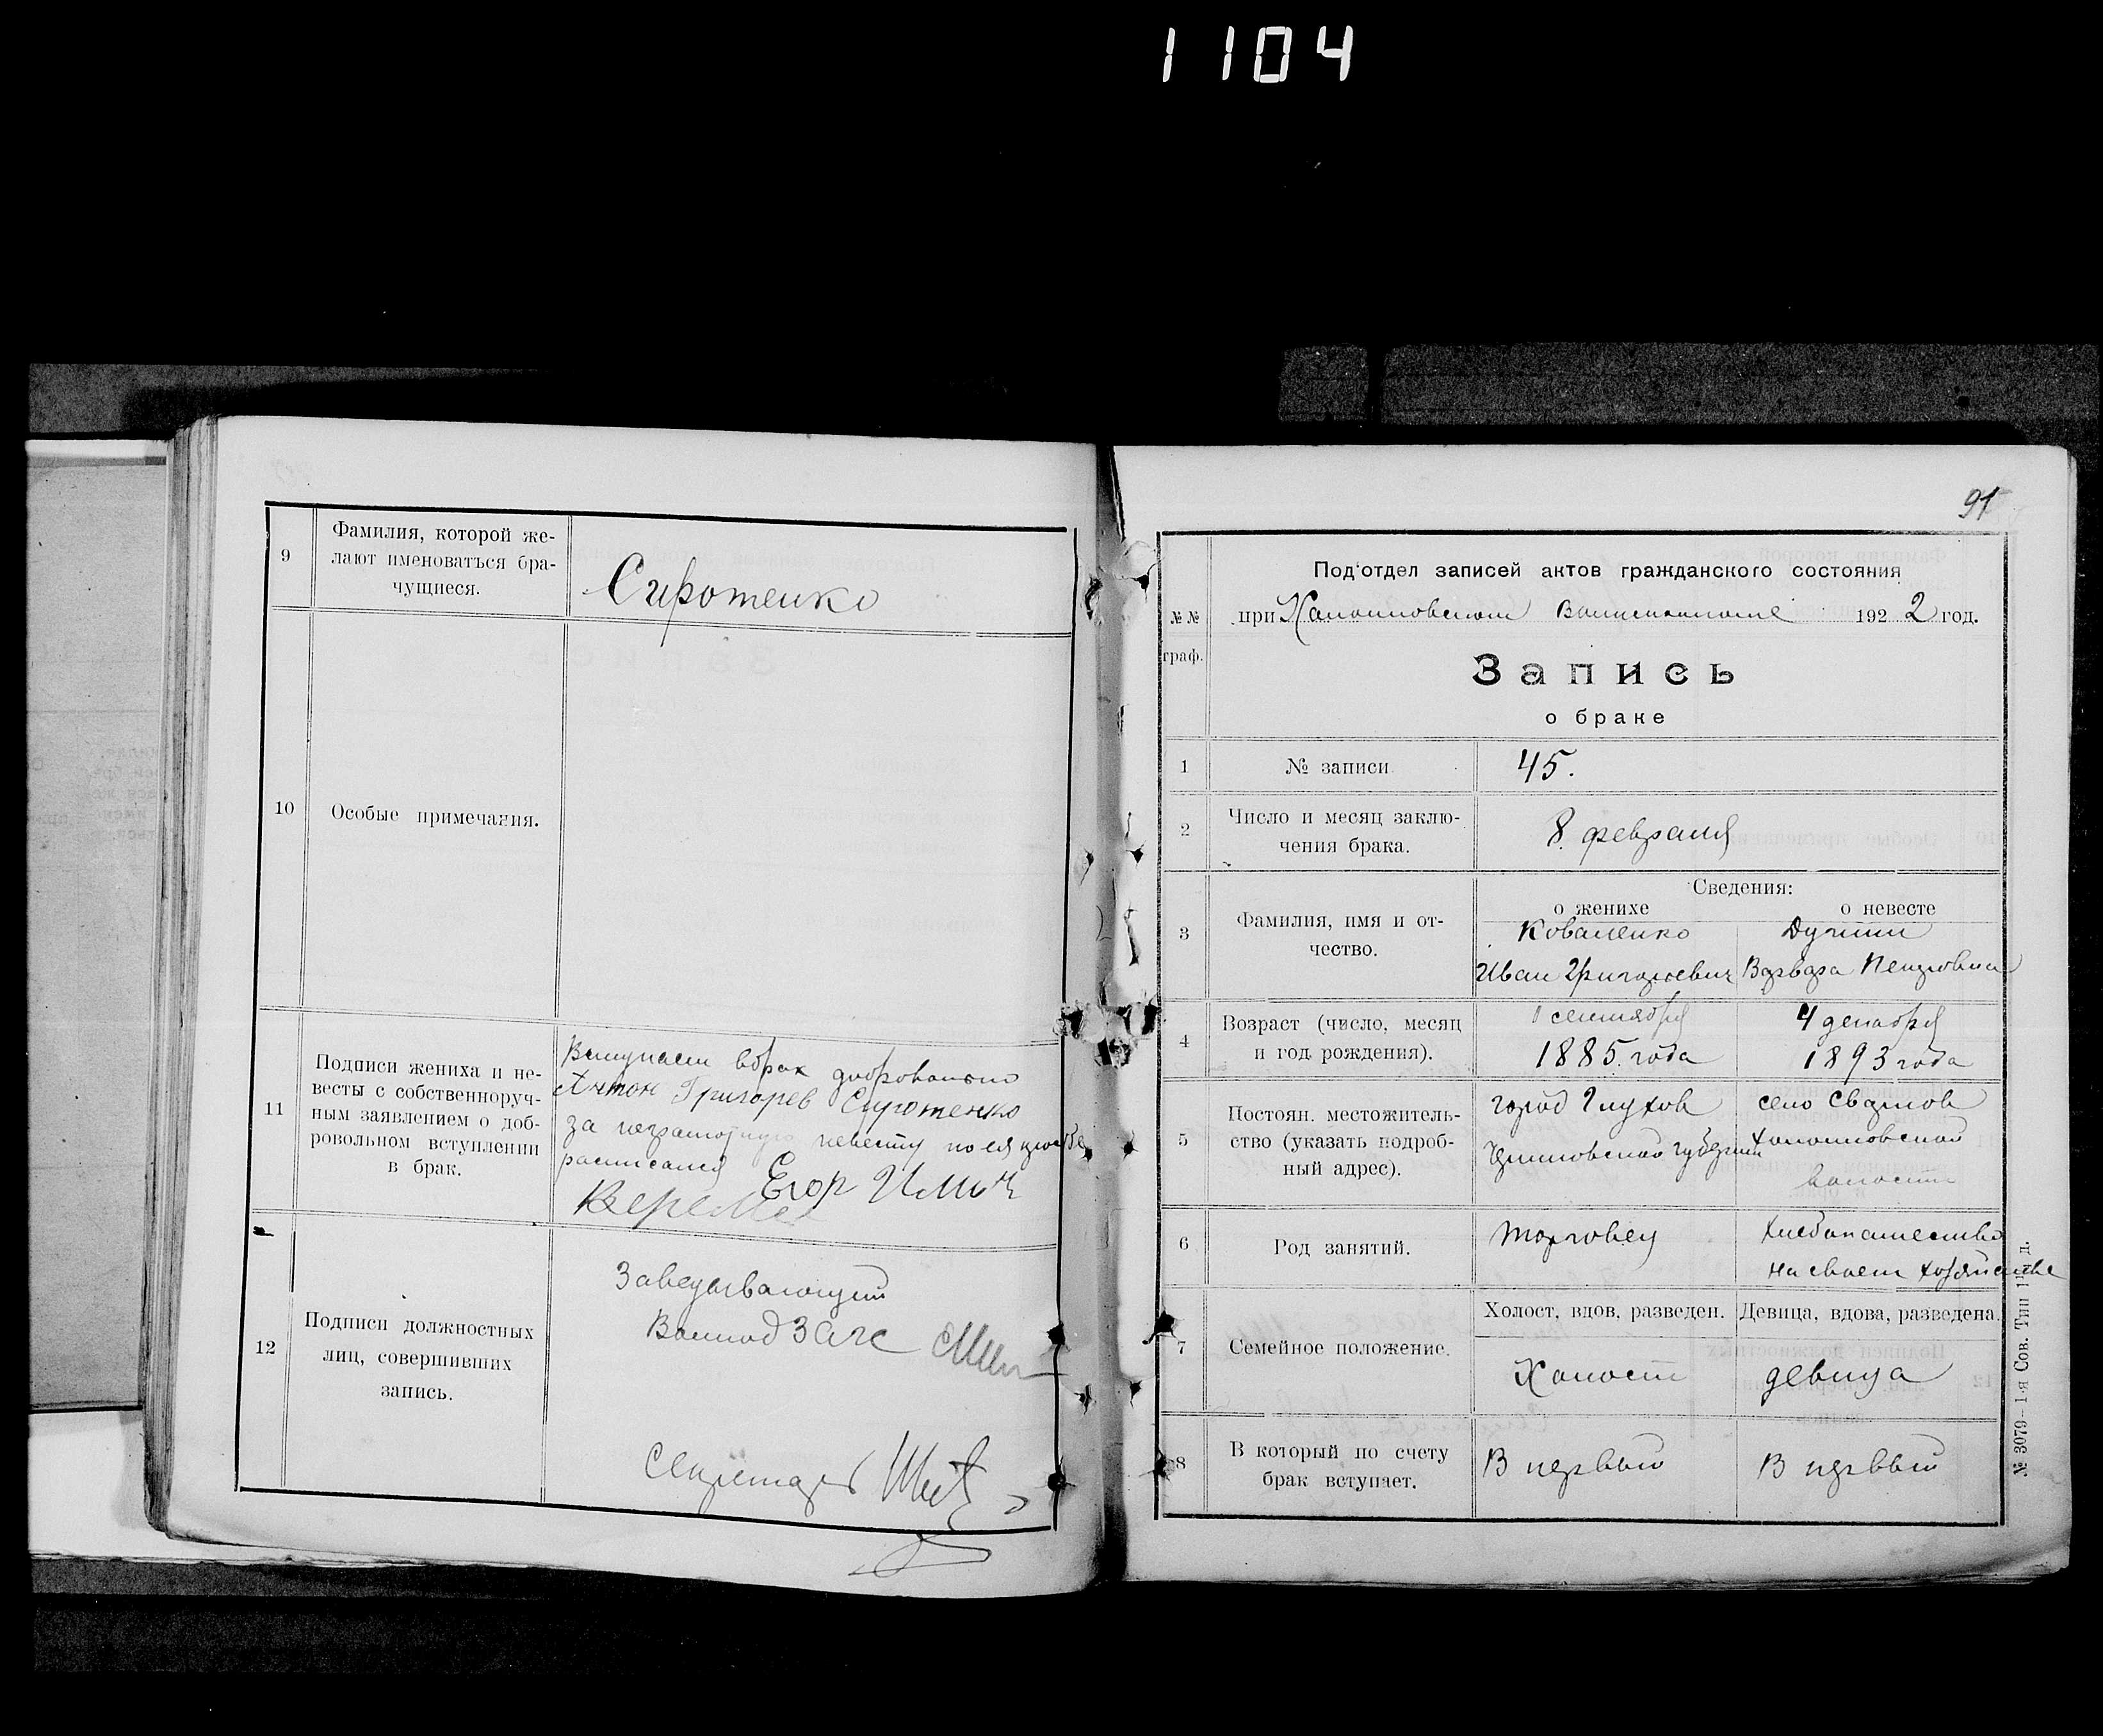 1104
9
Фамилия, которой же-
лают именоваться бра-
чущиеся.
Сиротенко
10
Особые примечания.
11
Подписи жениха и не-
весты с собственноруч-
ным заявлением о доб-
ровольном вступлении
в брак.
Вступаем вбрак добровольно
Антон Григорев Сиротенко
за неграмотную невесту по ея прозбе
расписался Егор Ильич
12
Подписи должностных
лиц, совершивших
запись.
Заведывающий
Волпод Загс
Секретарь
91
№№
граф.
Под'отдел записей актов гражданского состояния
при Холопковском Волисполкоме 1922 год.
Запись
о браке
1
№ записи
45.
2
Число и месяц заклю-
чения брака.
8 февраля
3
Фамилия, имя и от-
чество.
Сведения:
о женихе о невесте
Коваленко
Иван Григорьевич Варвара Петровна
4
Возраст (число, месяц
и год рождения).
1 сентября 4 декабря
1885 года 1893 года
5
Постоян. местожитель-
ство (указать подроб-
ный адрес).
город Глухов село Сварков
губернии Холопковской
волости
6
Род занятий.
торговец хлебопашество
на своем хозяйстве
7
Семейное положение.
Холост, вдов, разведен. Девица, вдова, разведена.
Холост девица
8
В который по счету
брак вступает.
В первый В первый
№ 3079—1-я Сов. Тип